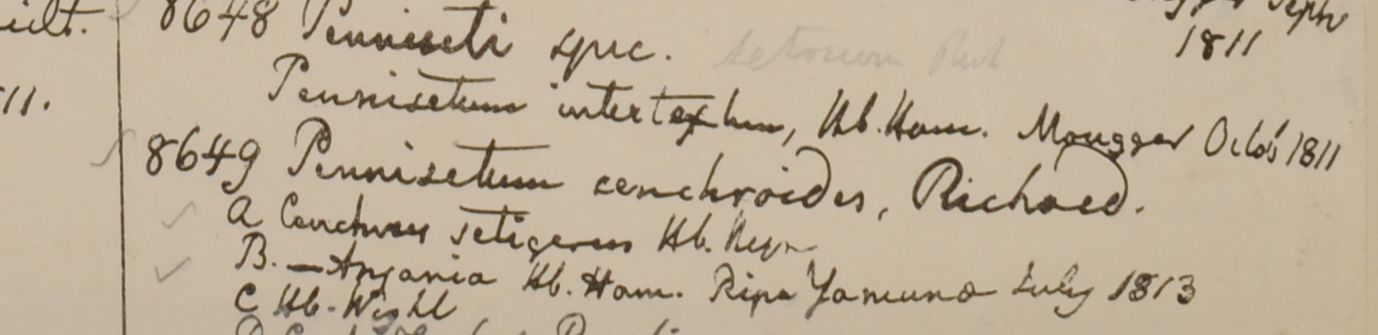 icilt.
11.
Sept
1811
8648 Penniseti spec. setosum Rich
Pennisetum intertextum, Hb. Ham. Mougger Octob 1811
8649 Pennisetum cenchroides, Richard.
A Cenchrus setigerus Hb. Heyn
B. — Anjania Hb. Ham. Ripa Yamuna July 1813
C Hb. Wight